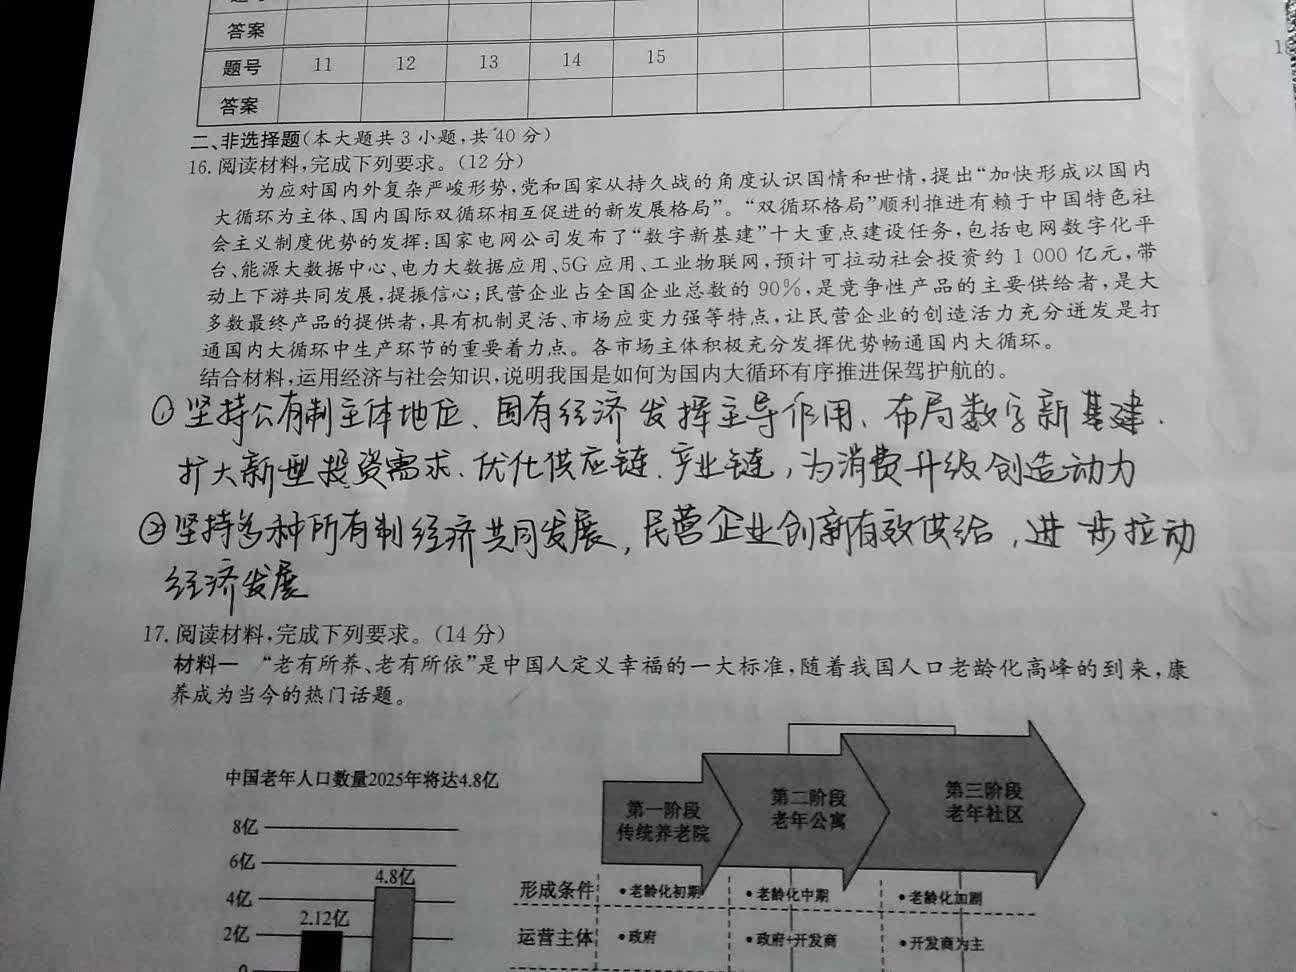 答案
题号 11 12 13 14 15
答案
二、非选择题(本大题共3小题,共40分)
16.阅读材料,完成下列要求。(12分)
为应对国内外复杂严峻形势,党和国家从持久战的角度认识国情和世情,提出“加快形成以国内
大循环为主体、国内国际双循环相互促进的新发展格局”。“双循环格局”顺利推进有赖于中国特色社
会主义制度优势的发挥:国家电网公司发布了“数字新基建”十大重点建设任务,包括电网数字化平
台、能源大数据中心、电力大数据应用、5G应用、工业物联网,预计可拉动社会投资约1 000亿元,带
动上下游共同发展,提振信心;民营企业占全国企业总数的90%,是竞争性产品的主要供给者,是大
多数最终产品的提供者,具有机制灵活、市场应变力强等特点,让民营企业的创造活力充分迸发是打
通国内大循环中生产环节的重要着力点。各市场主体积极充分发挥优势畅通国内大循环。
结合材料,运用经济与社会知识,说明我国是如何为国内大循环有序推进保驾护航的。
①坚持公有制主体地位、国有经济发挥主导作用、布局数字新基建.
扩大新型投资需求、优化供应链、产业链,为消费升级创造动力
②坚持多种所有制经济共同发展,民营企业创新有效供给,进步拉动
经济发展
17.阅读材料,完成下列要求。(14分)
材料一 “老有所养、老有所依”是中国人定义幸福的一大标准,随着我国人口老龄化高峰的到来,康
养成为当今的热门话题。
中国老年人口数量2025年将达4.8亿
8亿
6亿
4亿
2亿
0
2.12亿
4.8亿
第一阶段
传统养老院
第二阶段
老年公寓
第三阶段
老年社区
形成条件 •老龄化初期 •老龄化中期 •老龄化加剧
运营主体 •政府 •政府+开发商 •开发商为主